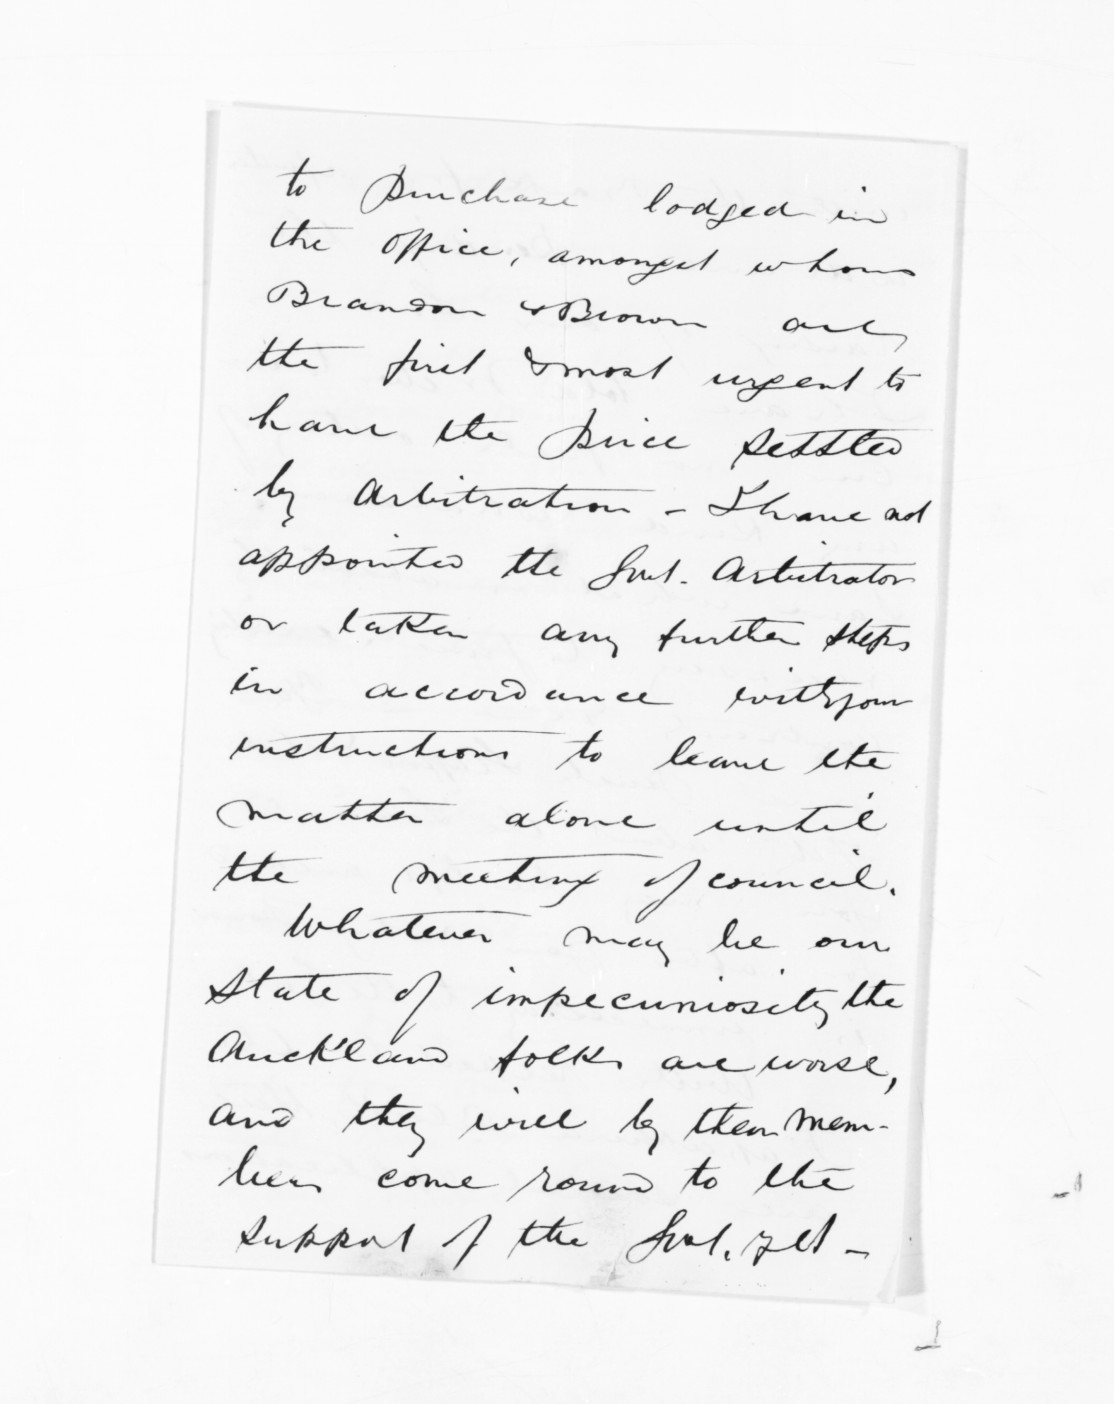 to purchase lodged in
the office, amongst whom
Brandon & Brown are
the first & most urgent to
have the price settled
by Arbitration - I have not
appointed the Govt. Arbitrator
or taken any further steps
in accordance with your
instructions to leave the
matter alone until
the meeting of council.
Whatever may be our
state of impecuniosity the
Auck'land folks are worse,
and they will by their mem-
bers come round to the
support of the Govt. yet -